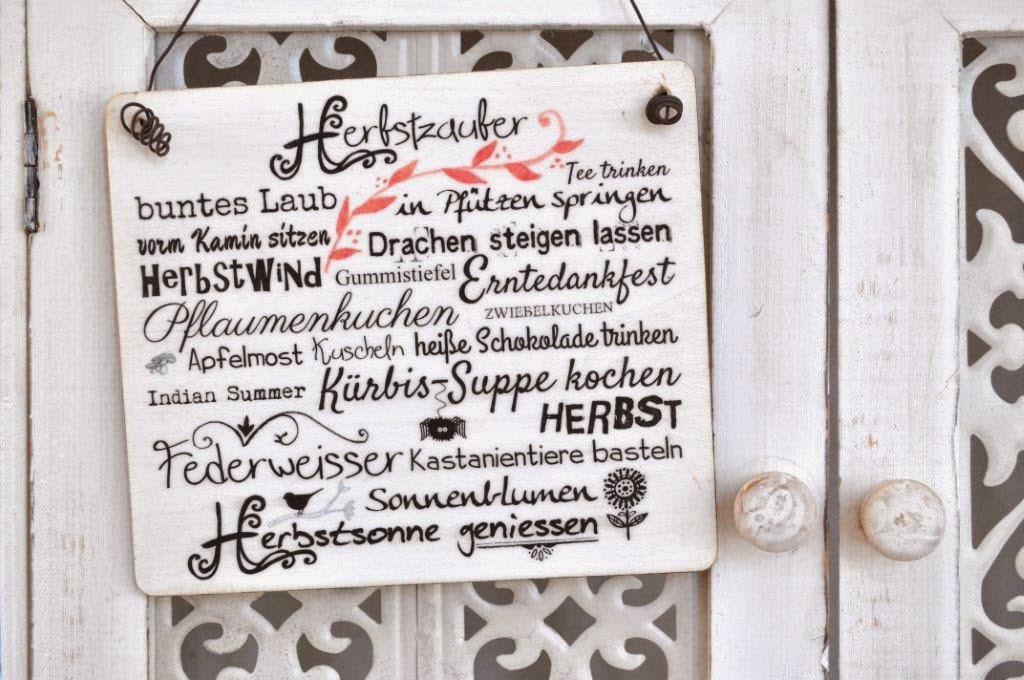 Herbstzauber
Tee trinken
buntes Laub in Pfützen springen
vorm Kamin sitzen Drachen steigen lassen
HerbstWind Gummistiefel Erntedankfest
Pflaumenkuchen ZWIEBELKUCHEN
Apfelmost Kuscheln heiße Schokolade trinken
Indian Summer Kürbis-Suppe kochen
HERBST
Federweisser Kastanientiere basteln
Sonnenblumen
Herbstsonne geniessen